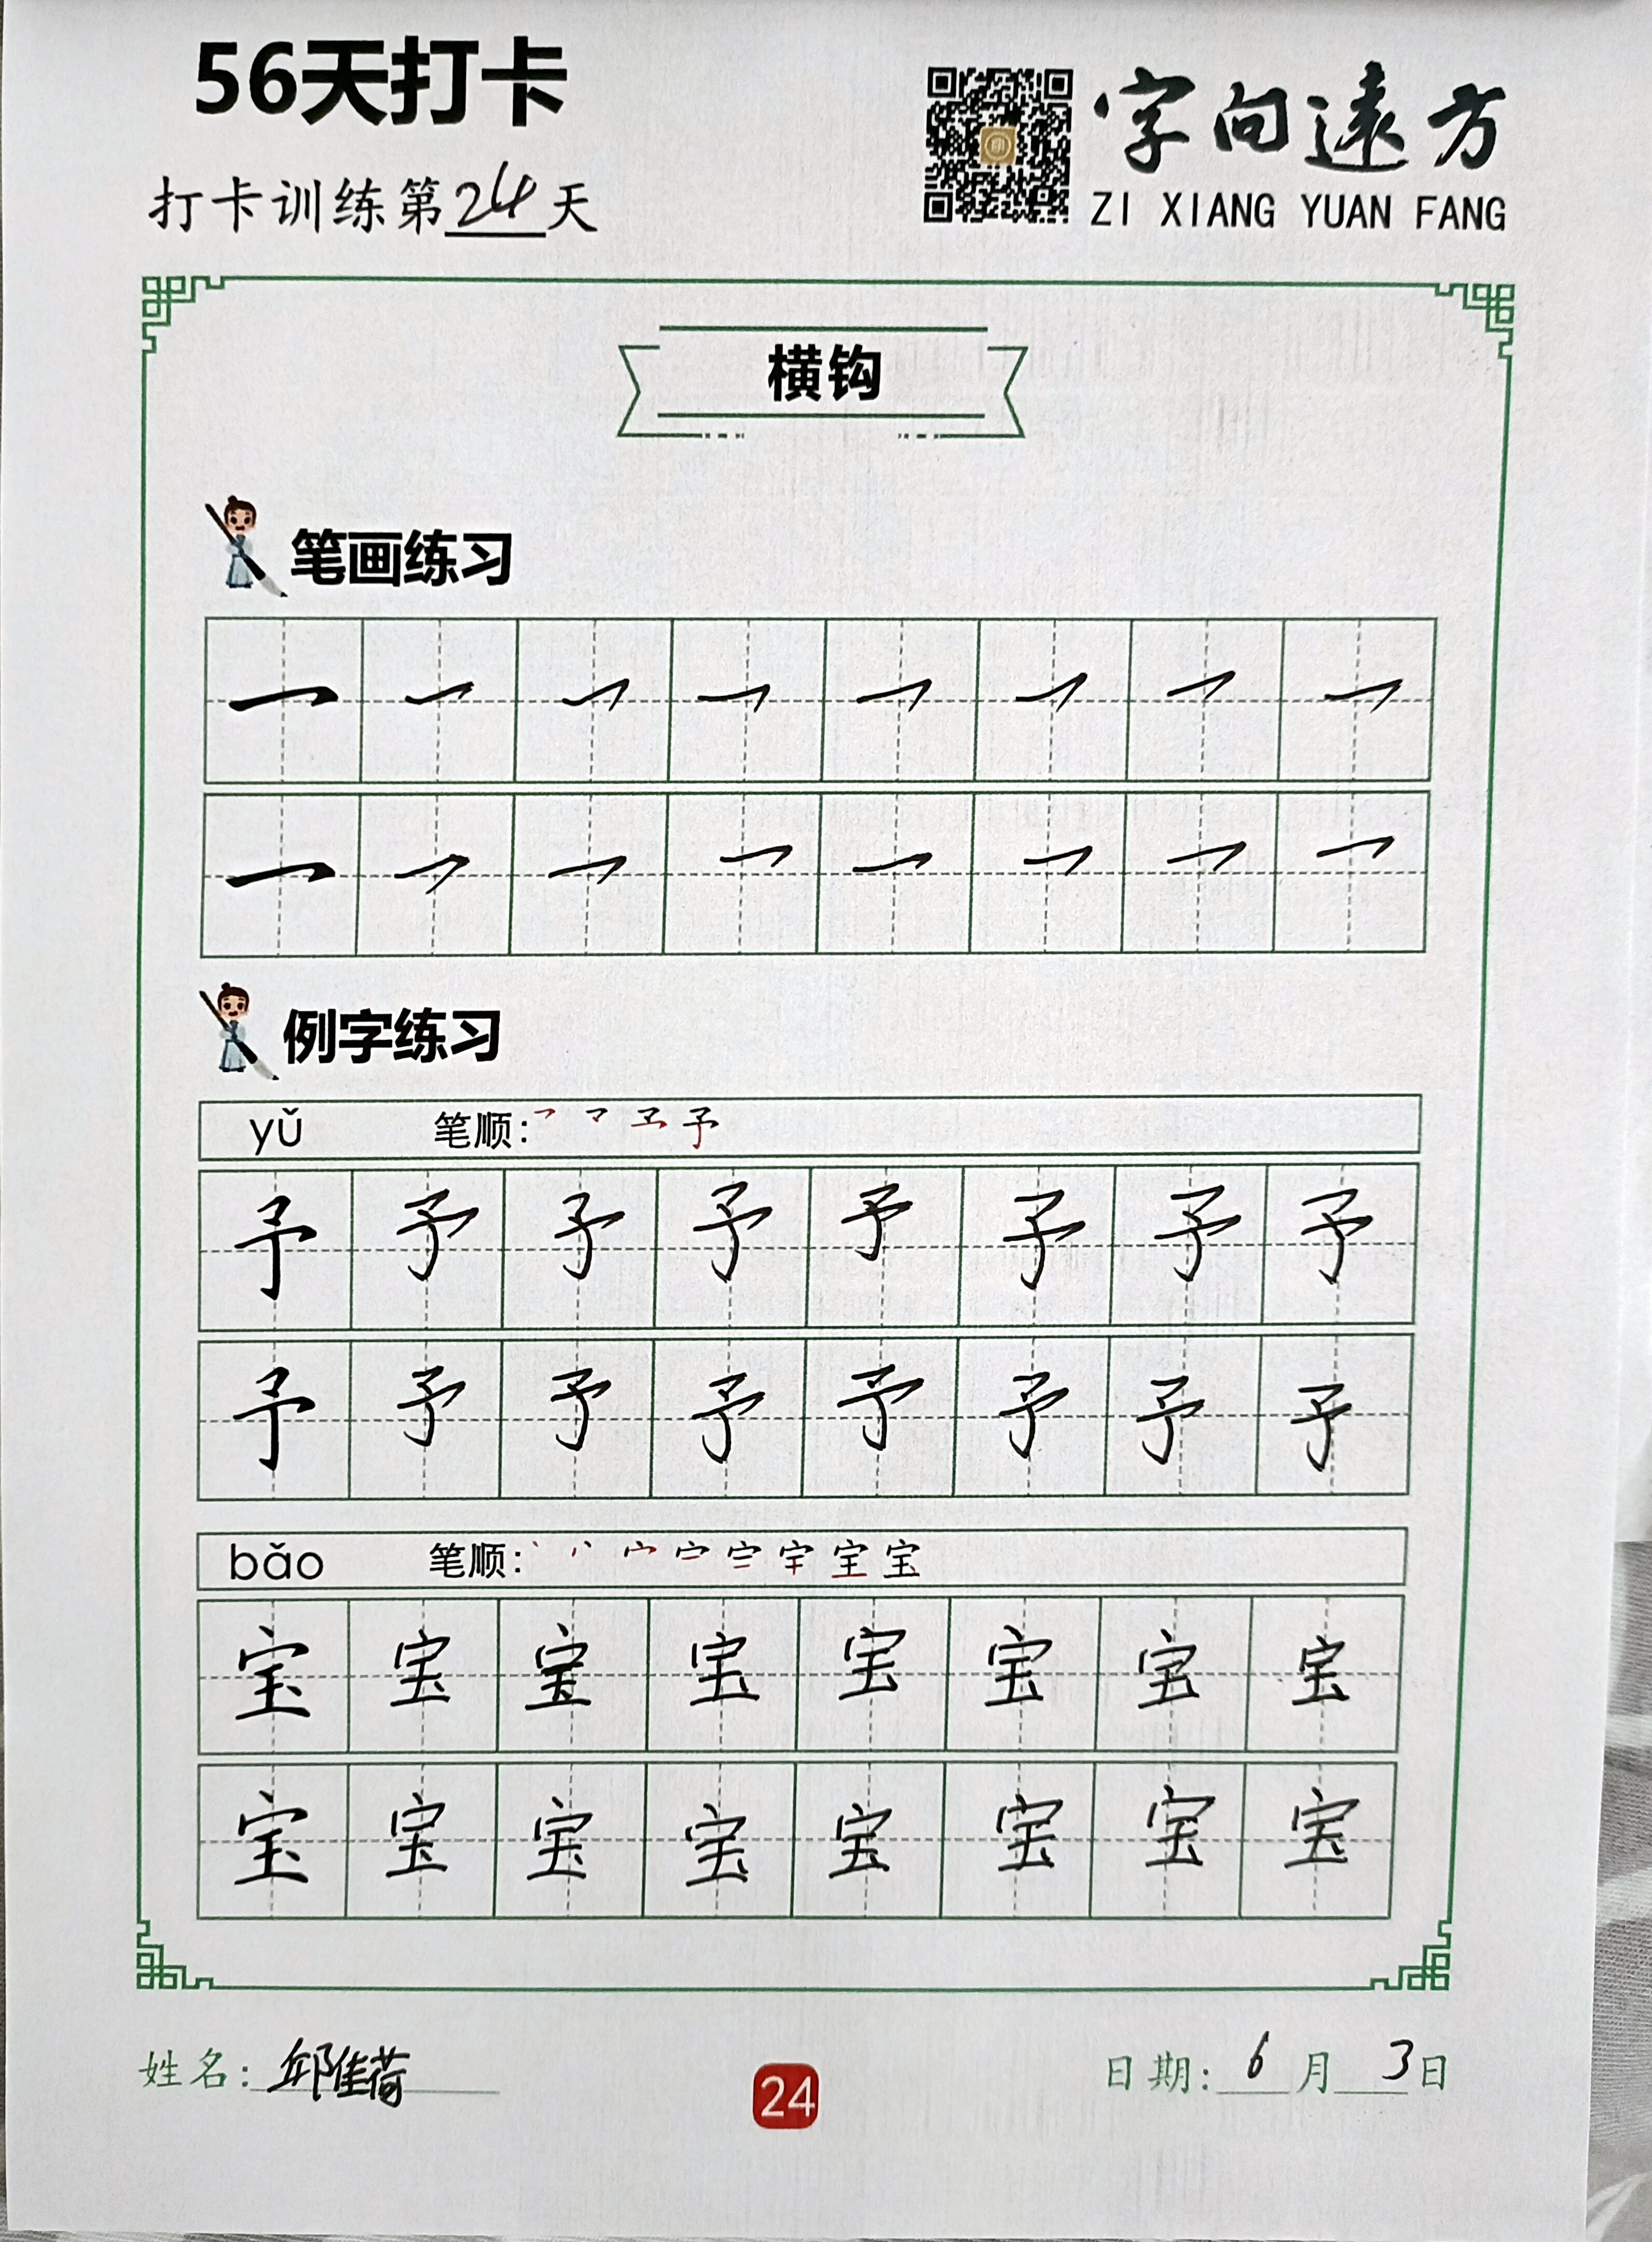 56天打卡
字向遠方
ZI XIANG YUAN FANG
打卡训练第24天
横钩
笔画练习
例字练习
yǔ 笔顺:
予 予 予 予 予 予 予 予
予 予 予 予 予 予 予 予
bǎo 笔顺:
宝 宝 宝 宝 宝 宝 宝 宝
宝 宝 宝 宝 宝 宝 宝 宝
姓名: 邱佳荷
24
日期: 6月3日